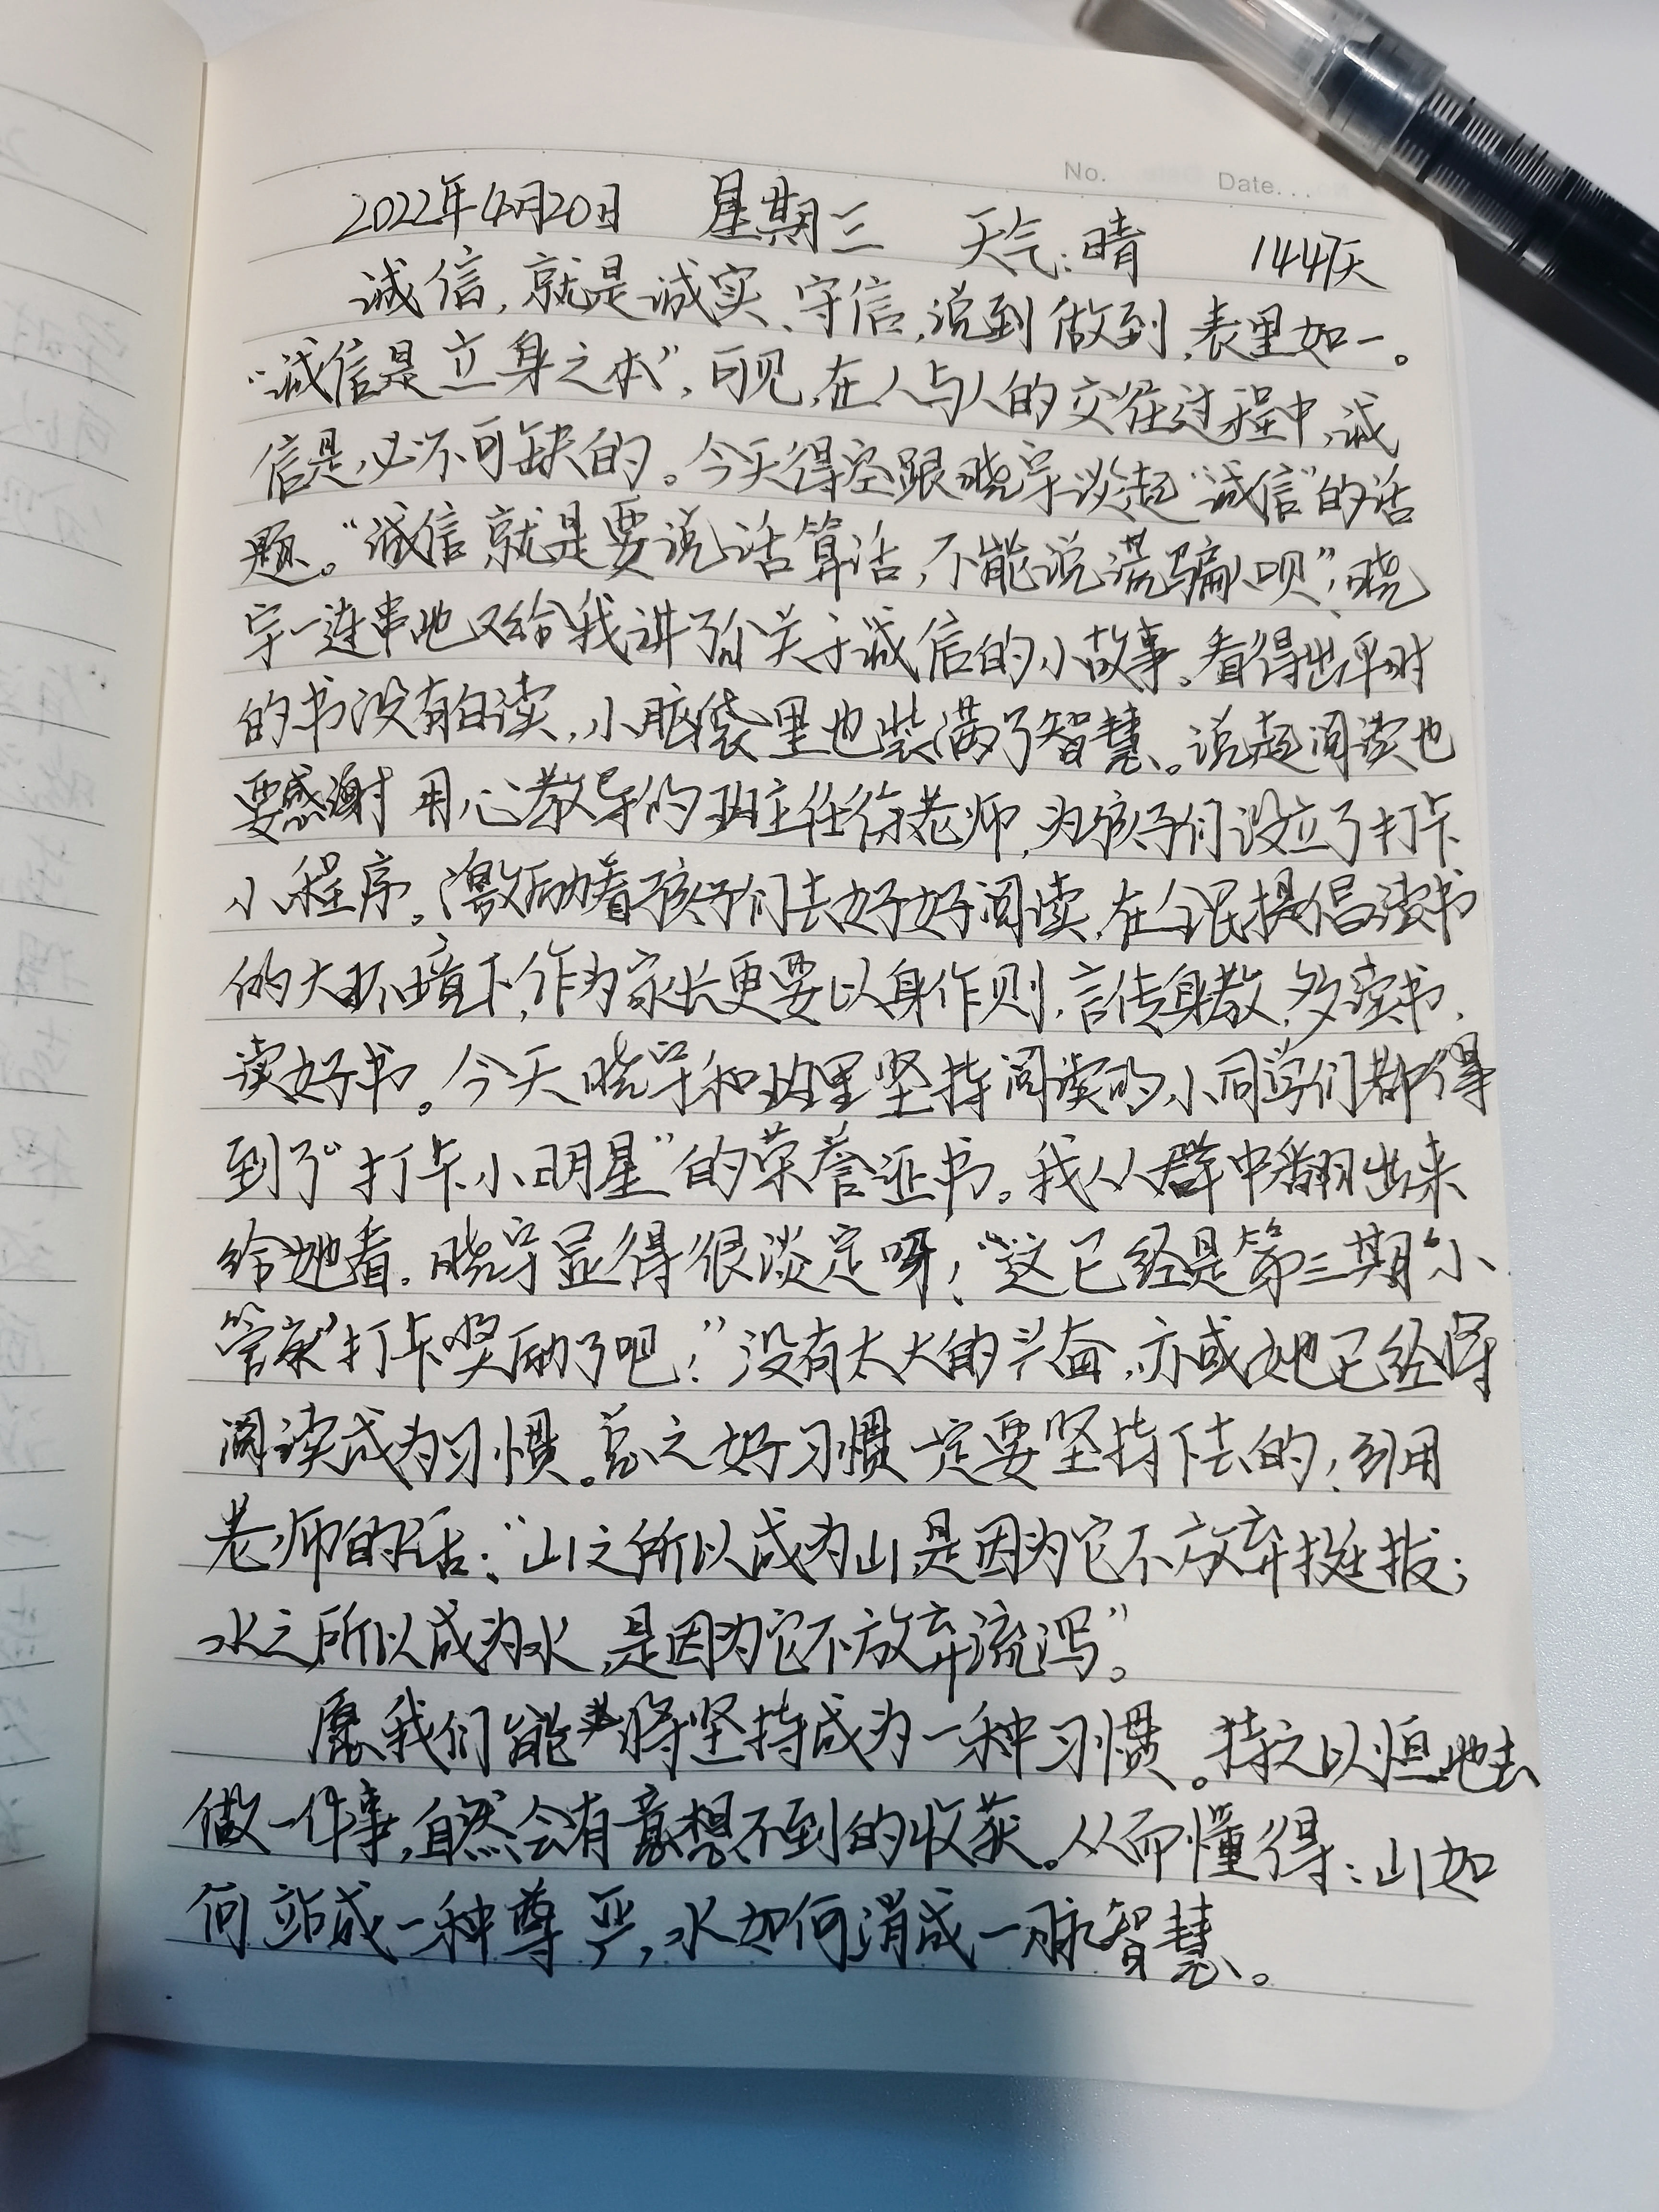 No. Date...
2022年4月20日 星期三 天气:晴 144天
诚信,就是诚实、守信,说到做到,表里如一。
“诚信是立身之本”,可见,在人与人的交往过程中,诚
信是必不可缺的。今天得空跟晓宇谈起“诚信”的话
题。“诚信就是要说话算话,不能说谎骗人呗”,晓
宇一连串地又给我讲了个关于诚信的小故事。看得出平时
的书没有白读,小脑袋里也装满了智慧。说起阅读也
要感谢用心教导的班主任徐老师,为孩子们设立了打卡
小程序。激励着孩子们去好好阅读,在全民提倡读书
的大环境下,作为家长更要以身作则,言传身教,多读书,
读好书。今天晓宇和班里坚持阅读的小同学们都得
到了“打卡小明星”的荣誉证书。我从群中翻出来
给她看,晓宇显得很淡定呀!“这已经是第三期“小
管家”打卡奖励了吧!”没有太大的兴奋,亦或她已经将
阅读成为习惯。总之好习惯一定要坚持下去的!引用
老师的话:“山之所以成为山,是因为它不放弃挺拔;
水之所以成为水,是因为它不放弃流泻”。
愿我们能将坚持成为一种习惯。持之以恒地去
做一件事,自然会有意想不到的收获。从而懂得:山如
何站成一种尊严,水如何淌成一脉智慧。